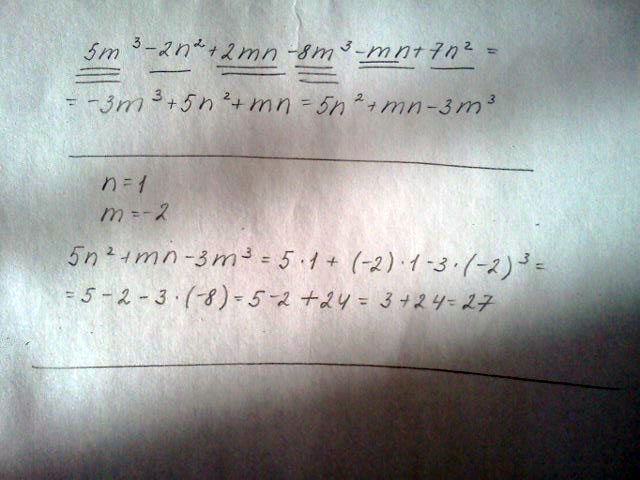 5m³-2n²+2mn-8m³-mn+7n²=
=-3m³+5n²+mn=5n²+mn-3m³
n=1
m=-2
5n²+mn-3m³=5·1+(-2)·1-3·(-2)³=
=5-2-3·(-8)=5-2+24=3+24=27